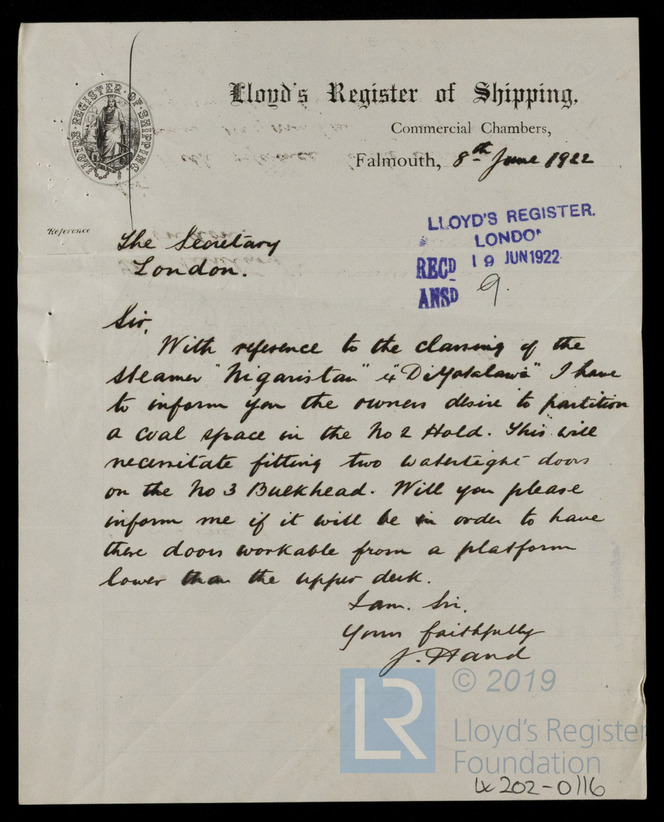 LLOYD'S · REGISTER · OF · SHIPPING
Lloyd's Register of Shipping,
Commercial Chambers,
Falmouth, 8th June 1922
Reference
The Secretary
London.
LLOYD'S REGISTER.
LONDON
RECD 19 JUN 1922
ANSD 9.
Sir,
With reference to the classing of the
steamer "Nigaristan" & "      " I have
to inform you the owners desire to partition
a coal space in the No 2 Hold. This will
necessitate fitting two watertight doors
on the No 3 Bulkhead. Will you please
inform me if it will be in order to have
these doors workable from a platform
lower than the upper deck.
I am. Sir.
Yours faithfully
J. Hand
© 2019
LR
Lloyd's Register
Foundation
202-0116